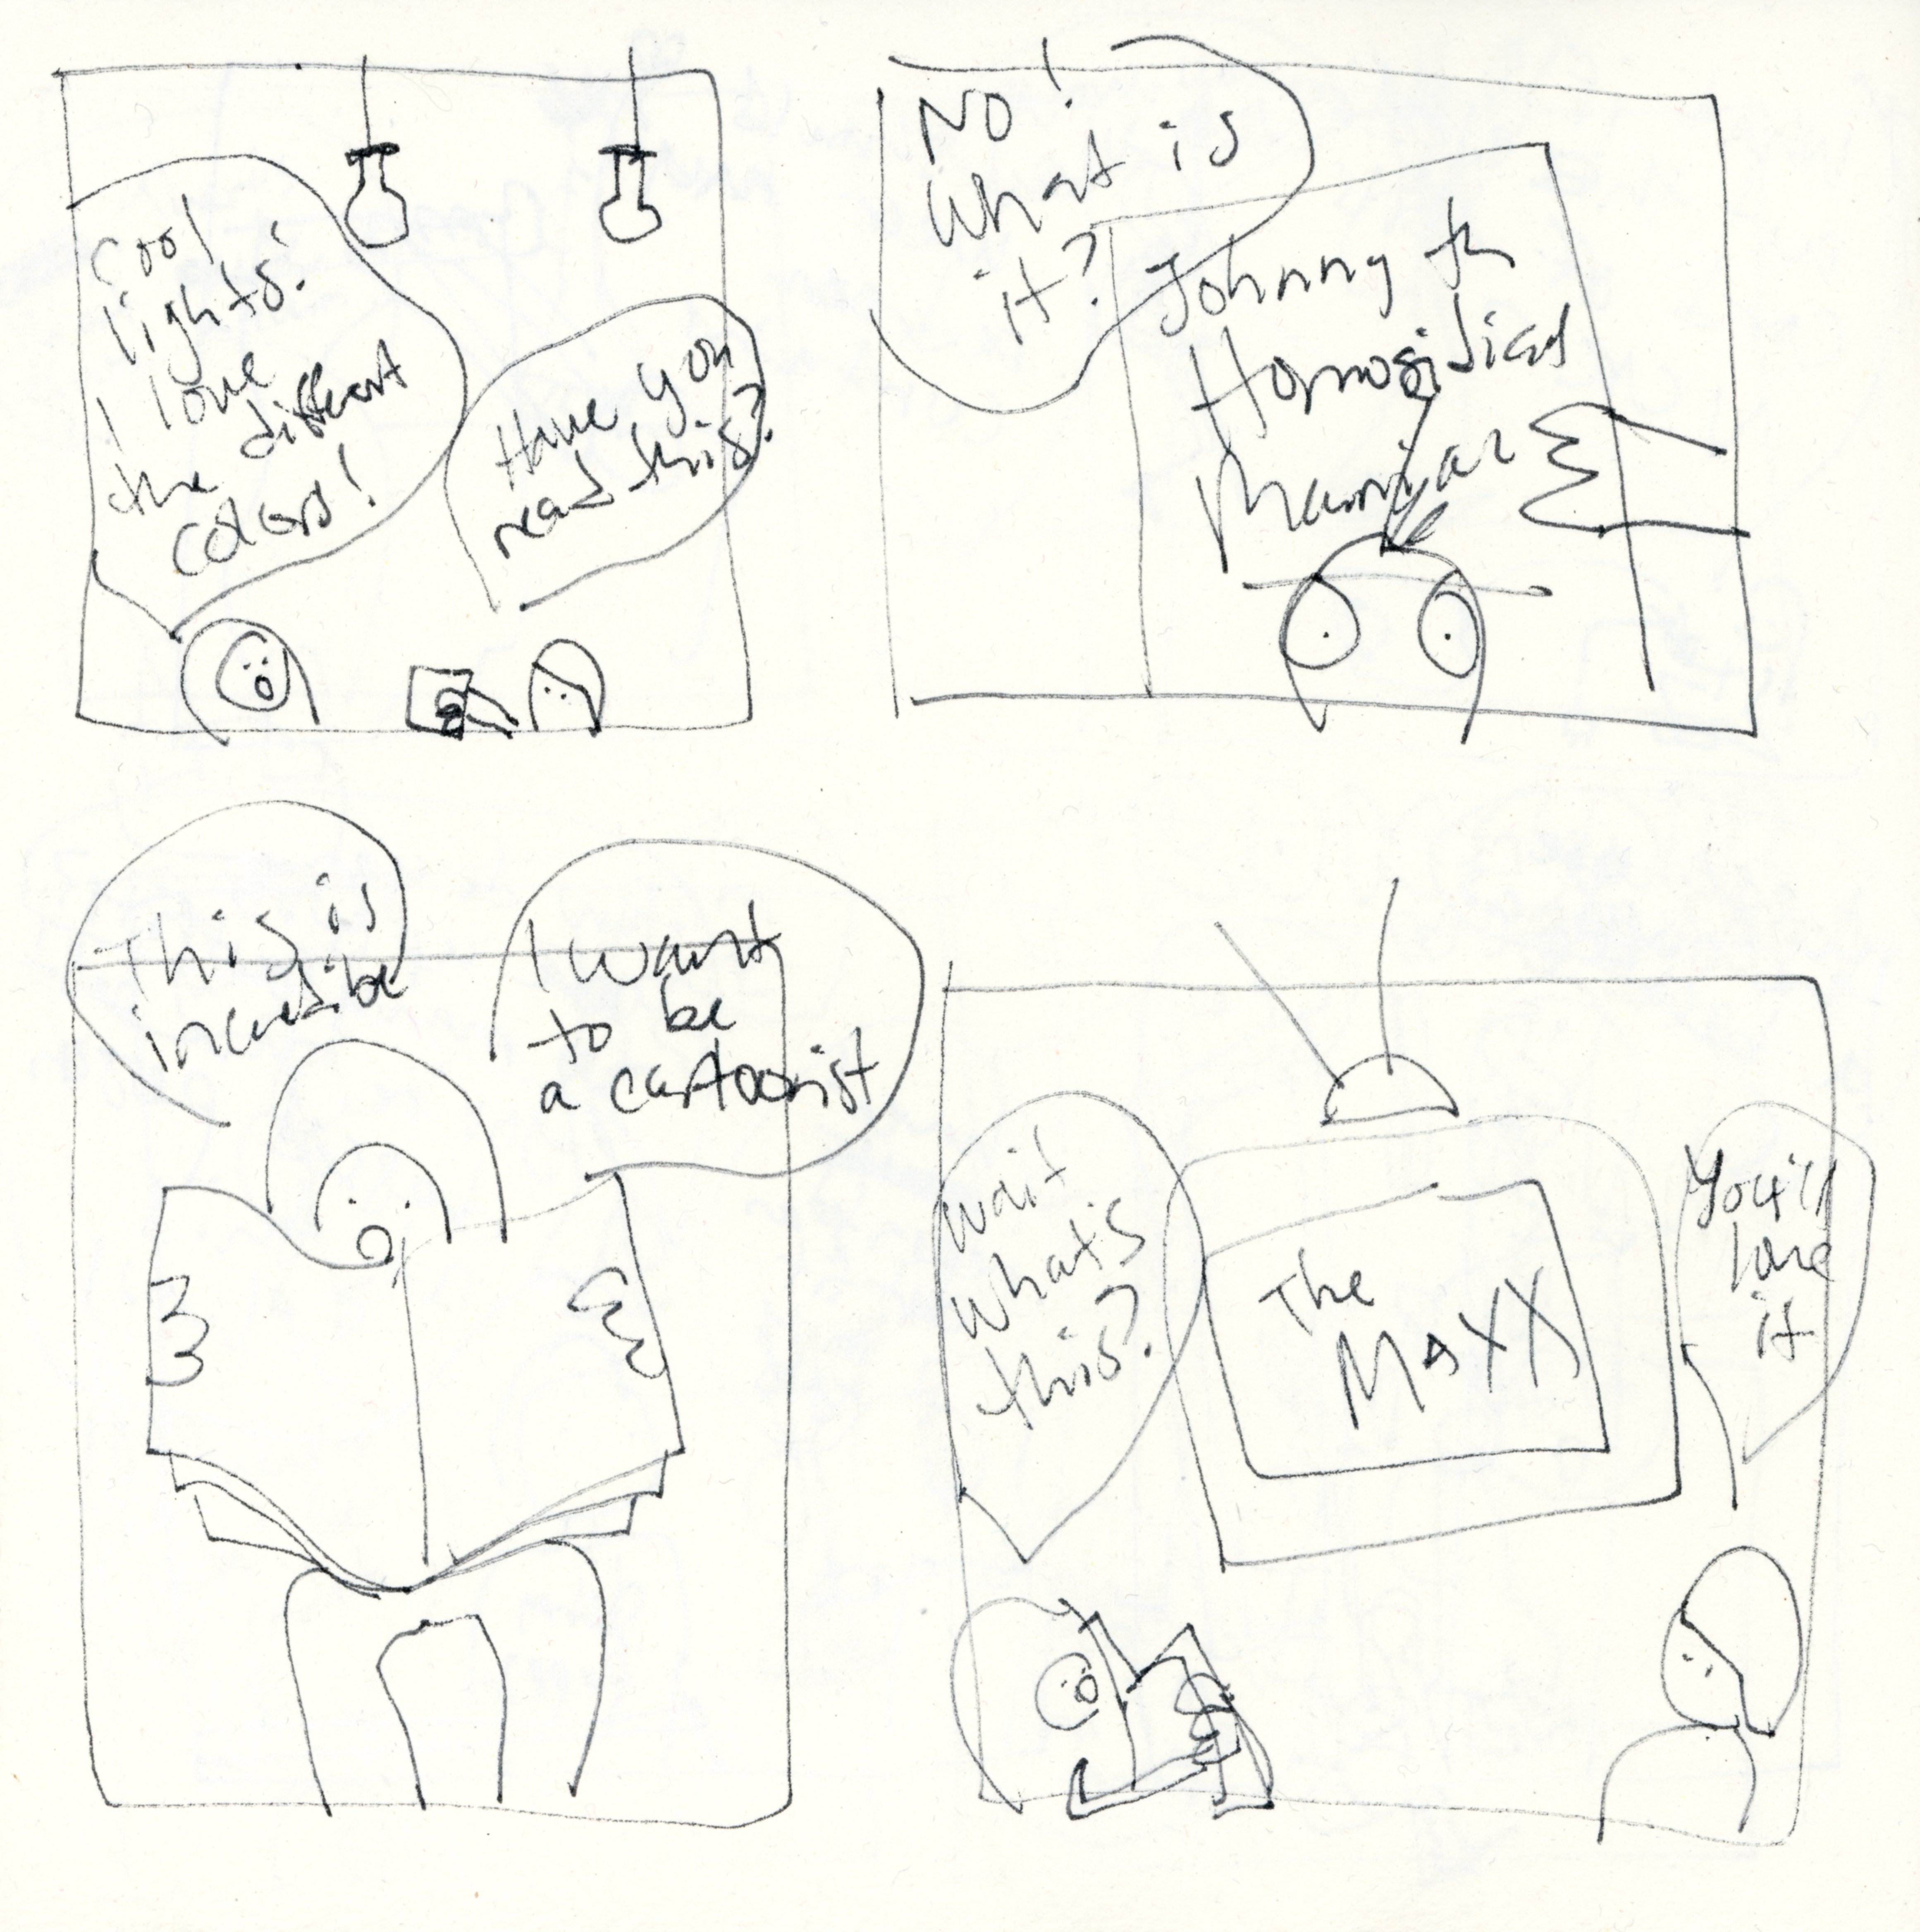 Cool
lights!
I love
the different
colors!
Have you
read this?
No!
What is
it?
Johnny th
Homosidical
Maniac
This is
incredibe
I want
to be
a cartoonist
Wait
what's
this?
The
MAXX
You'll
love
it